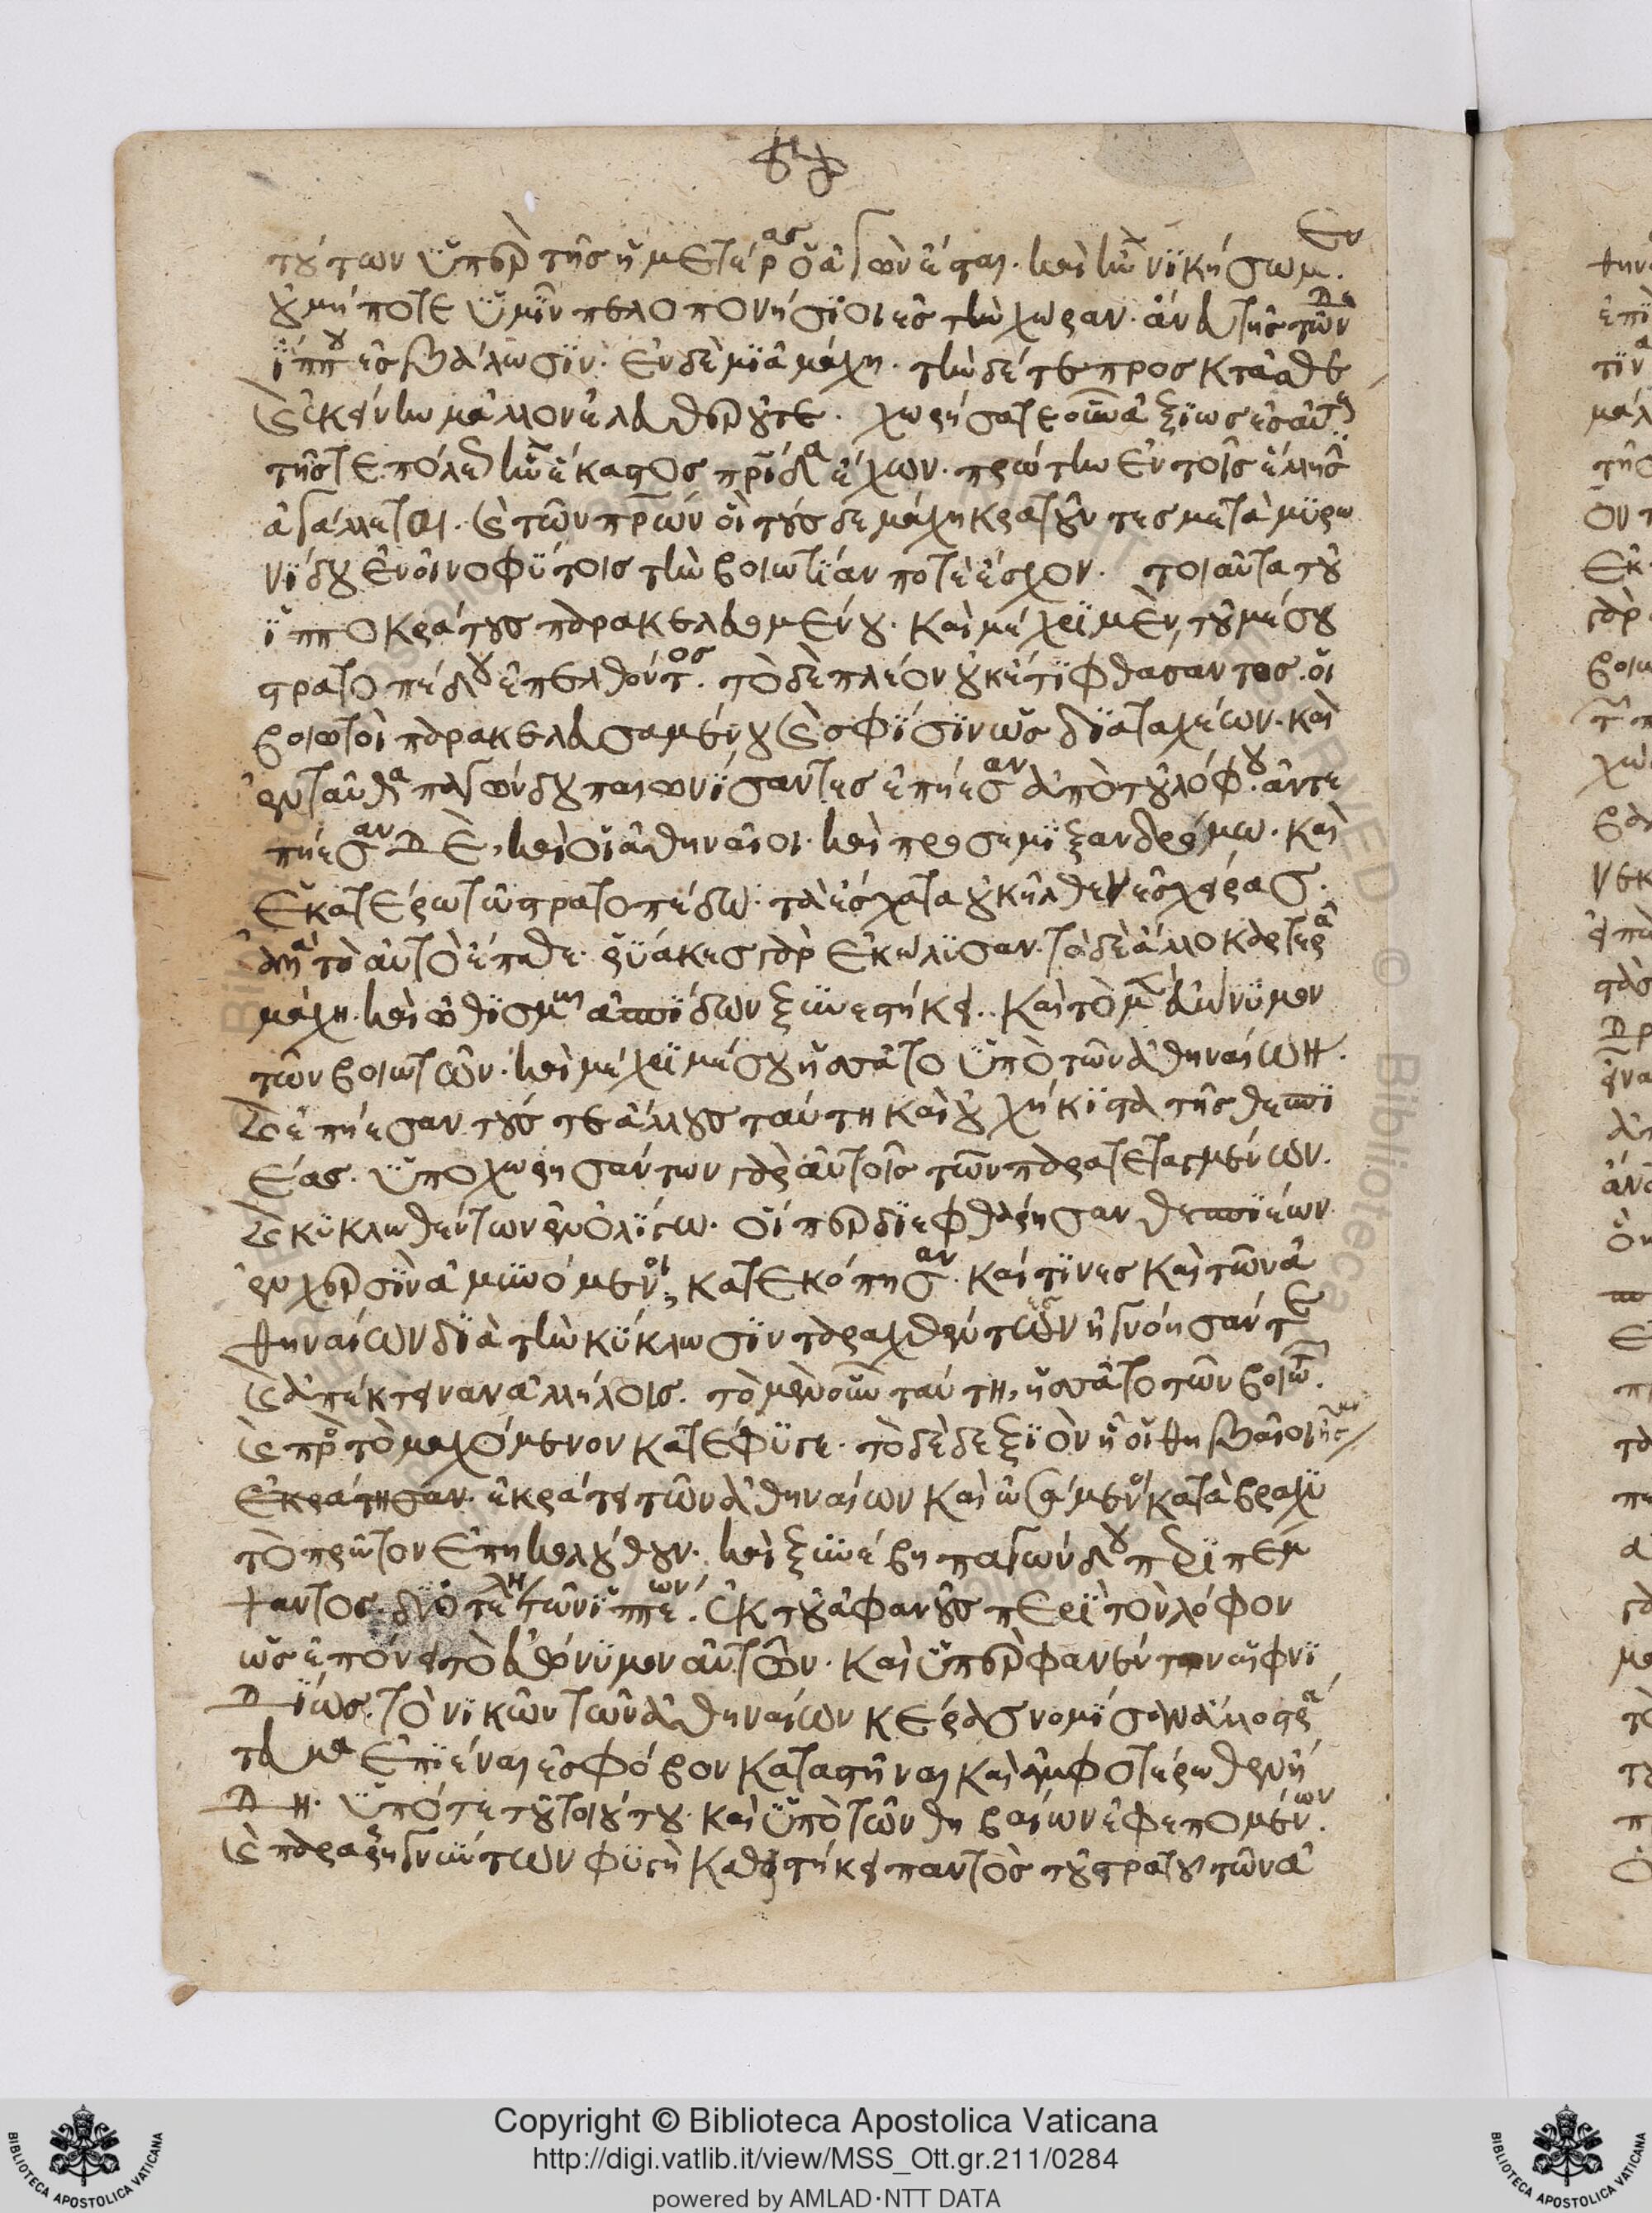 τούτων ὑπὲρ τῆς ἡμετέρας ὁ ἀγὼν ἔσται. καὶ ἢν νικήσωμεν.
οὐ μή ποτε ὑμῖν πελοπονήσιοι ἐς τὴν χώραν. ἄνευ τῆς τῶνδε
ἵππου ἐσβάλλωσιν. ἐν δὲ μιᾶ μάχη. τήνδέ τε προσκτᾶσθε
καὶ ἐκείνην μᾶλλον ἐλευθεροῦτε. χωρήσατε οὖν ἀξίως ἐς αὐτοὺς
τῆς τε πόλεως ἣν ἕκαστος πατρίδα ἔχων. πρώτην ἐν τοῖς ἕλλησιν
ἀγάλλεται. καὶ τῶν πατέρων οἳ τούσδε μάχη κρατοῦντες μετὰ μυρω
νίδου ἐν οἰνοφύτοις τὴν βοιωτίαν ποτὲ ἔσχον. τοιαῦτα τοῦ
ἱπποκράτους παρακελευομένου. καὶ μέχρι μὲν, τοῦ μέσου
στρατοπέδου ἐπελθόντος. τὸ δὲ πλέον οὐκέτι φθάσαντος. οἱ
βοιωτοὶ παρακελευσαμένου καὶ σφίσιν ὡς διαταχέων. καὶ
ἐνταῦθα παγώνδου παιωνίσαντες ἐπήεσαν ἀπὸ τοῦ λόφου. ἀντε
πήεσαν δὲ, καὶ οἱ ἀθηναῖοι. καὶ προσέμιξαν δρόμω. καὶ
ἑκατέρω τῶ στρατοπέδω. τὰ ἔσχατα οὐκ ἦλθεν ἐς χεῖρας.
ἀλλὰ τὸ αὐτὸ ἔπαθε. ῥύακες γὰρ ἐκώλυσαν. τὸ δὲ ἄλλο καρτερᾶ
μάχη. καὶ ὠθισμῶ ἀσπίδων ξυνεστήκει. καὶ τὸ μὲν εὐώνυμον
τῶν βοιωτῶν. καὶ μέχρι μέσου ἡσσᾶτο ὑπὸ τῶν ἀθηναίων.
καὶ ἐπίεσαν τούς τε ἄλλους ταύτη καὶ οὐχ ἥκιστα τῆς θεσπι
έας. ὑποχωρησάντων γὰρ αὐτοῖς τῶν παρατεταγμένων.
καὶ κυκλωθέντων ἐν ὀλίγω. οἵπερ διεφθάρησαν θεσπιέων
ἐν χερσὶν ἀμυνόμενοι, κατεκόπησαν. καί τινες καὶ τῶν ἀ
θηναίων διὰ τὴν κύκλωσιν ταραχθέντων ἠγνόησάν τε
καὶ ἀπέκτειναν ἀλλήλοις. τὸ μὲν οὖν ταύτη, ἡσσᾶτο τῶν βοιωτῶν.
καὶ πρὸς τὸ μαχόμενον κατέφυγε. τὸ δὲ δεξιὸν ἧ οἱ θηβαῖοι ἦσαν
ἐκράτησαν. ἐκράτει τῶν ἀθηναίων καὶ ὠσάμενοι κατὰ βραχὺ
τὸ πρῶτον ἐπηκολούθουν. καὶ ξυνέβη παγώνδου περιπέμ
ψαντος. δύο τέλη τῶν ἱππέων. ἐκ τοῦ ἀφανοῦς περὶ τὸν λόφον
ὡς ἐπόνει τὸ εὐώνυμον αὐτῶν. καὶ ὑπερφανέντων αἰφνι
δίως. τὸ νικῶν τῶν ἀθηναίων κέρας νομίσαν ἄλλο στρά
τευμα ἐπιέναι ἐς φόβον καταστῆναι καὶ ἀμφοτέρωθεν ἤ
δη. ὑπό τε τοῦ τοιούτου. καὶ ὑπὸ τῶν θηβαίων ἐφεπομένων.
καὶ παραρηγνύντων φυγὴ καθεστήκει παντὸς τοῦ στρατοῦ τῶν ἀ
Copyright © Biblioteca Apostolica Vaticana
http://digi.vatlib.it/view/MSS_Ott.gr.211/0284
powered by AMLAD·NTT DATA
BIBLIOTECA APOSTOLICA VATICANA
BIBLIOTECA APOSTOLICA VATICANA